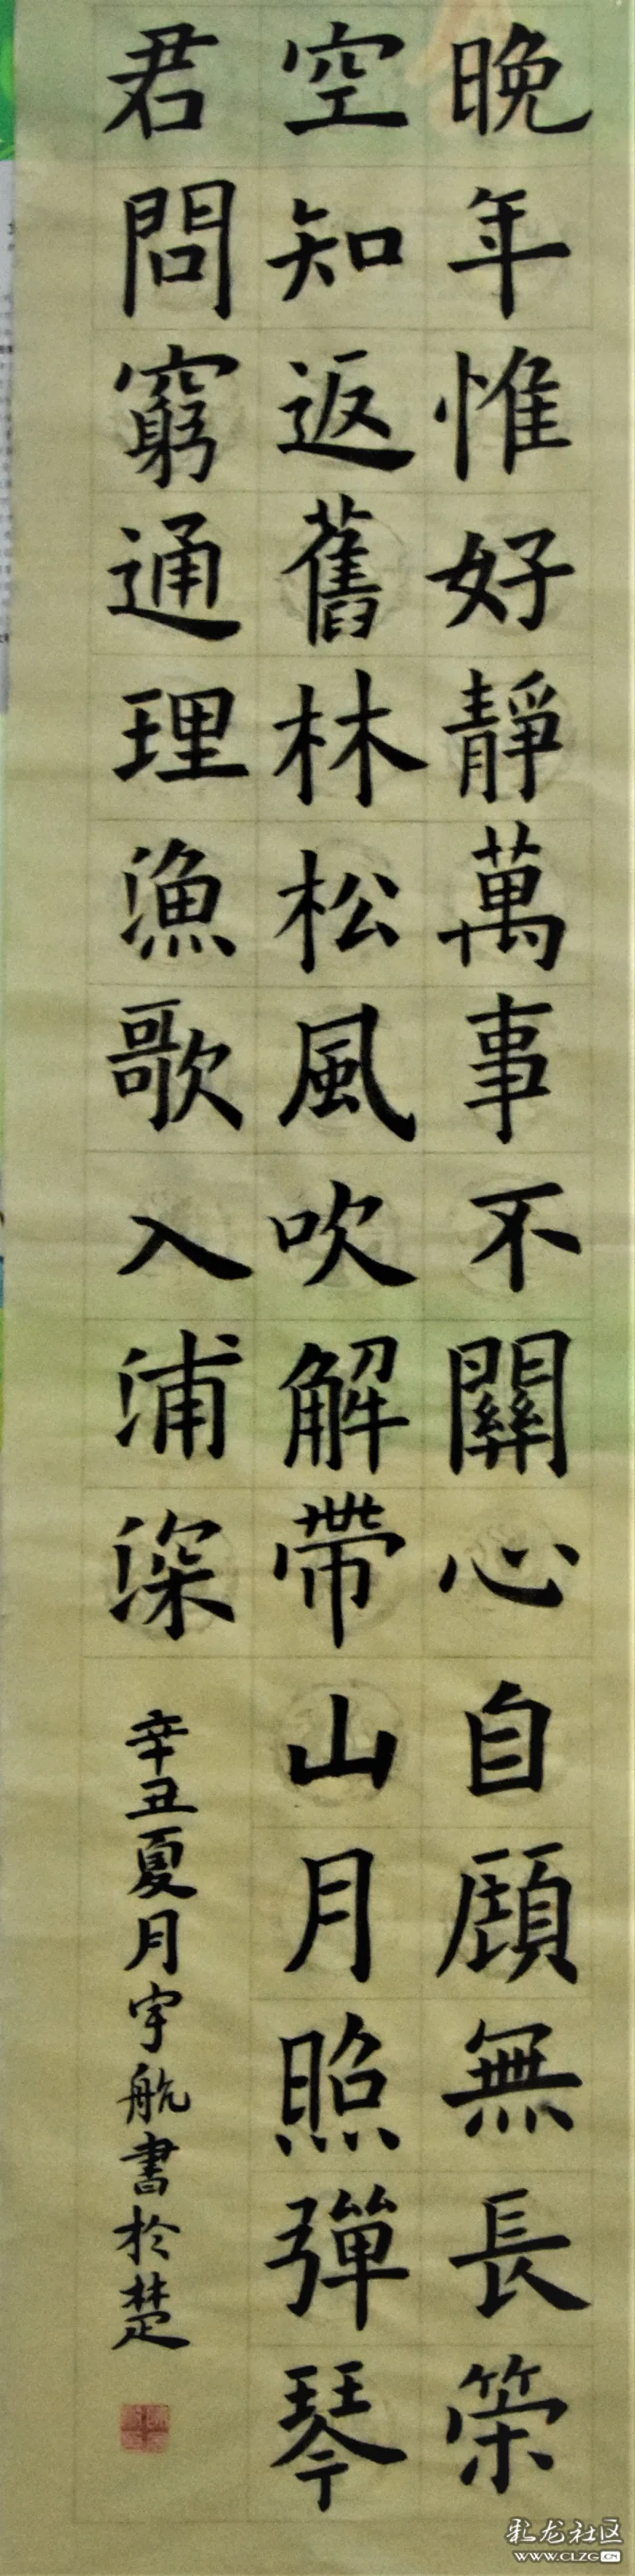 晚年惟好靜萬事不關心自顧無長策
空知返舊林松風吹解帶山月照彈琴
君問窮通理漁歌入浦深
辛丑夏月宇航書於楚
彩龙社区
www.CLZG.CN